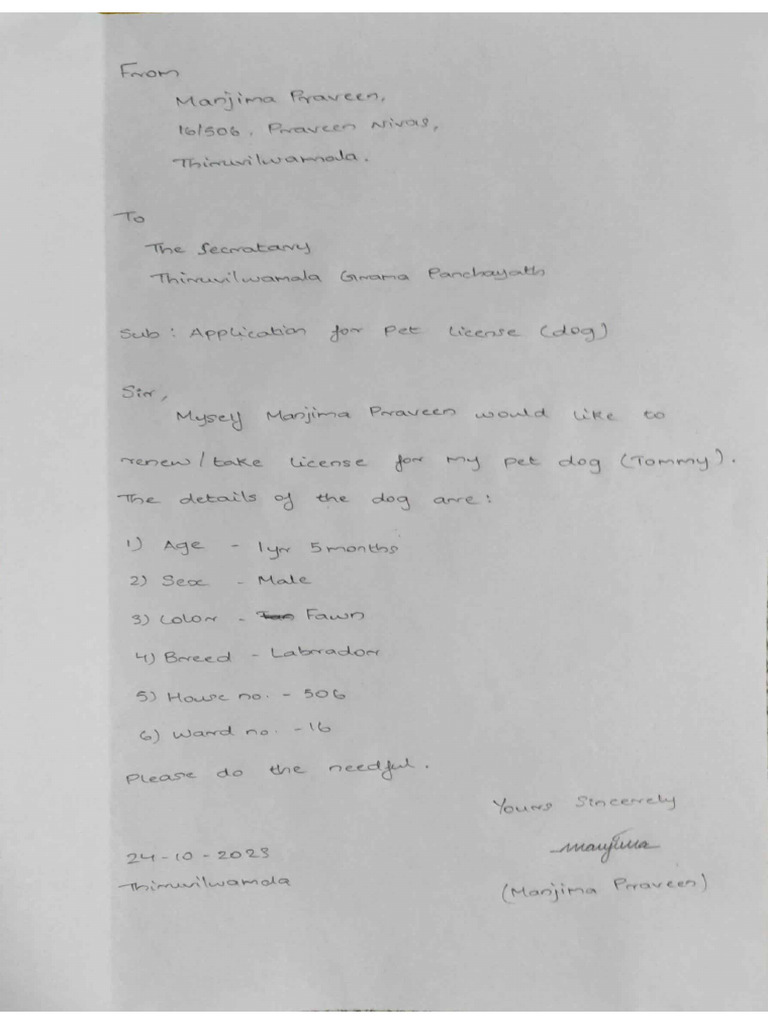 From
Manjima Praveen,
16/506, Praveen Nivas,
Thiruvilwamala.
To
The Secratary
Thiruvilwamala Grama Panchayath
Sub : Application for Pet License (dog)
Sir,
Myself Manjima Praveen would like to
renew/take license for my pet dog (Tommy).
The details of the dog are :
1) Age - 1yr 5months
2) Sex - Male
3) Color - Fawn
4) Breed - Labrador
5) House no. - 506
6) Ward no. - 16
Please do the needful.
Yours Sincerely
24-10-2023
manjima
Thiruvilwamala
(Manjima Praveen)